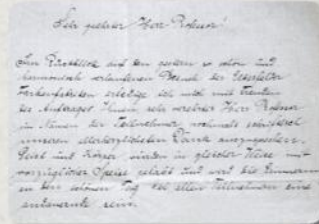 Sehr geehrter Herr Professor!
Im Rückblick auf den gestern so schön und
harmonisch verlaufenen Besuch der
Farbenfabriken erledige ich mich mit Freuden
des Auftrages Ihnen sehr verehrter Herr Professor
im Namen der Teilnehmer nochmals schriftlich
unseren allerherzlichsten Dank auszusprechen.
Geist und Körper wurden in gleicher Weise mit
vorzüglicher Speise erlabt und wird die Erinnerung
an den schönen Tag bei allen Teilnehmern eine
andauernde sein.